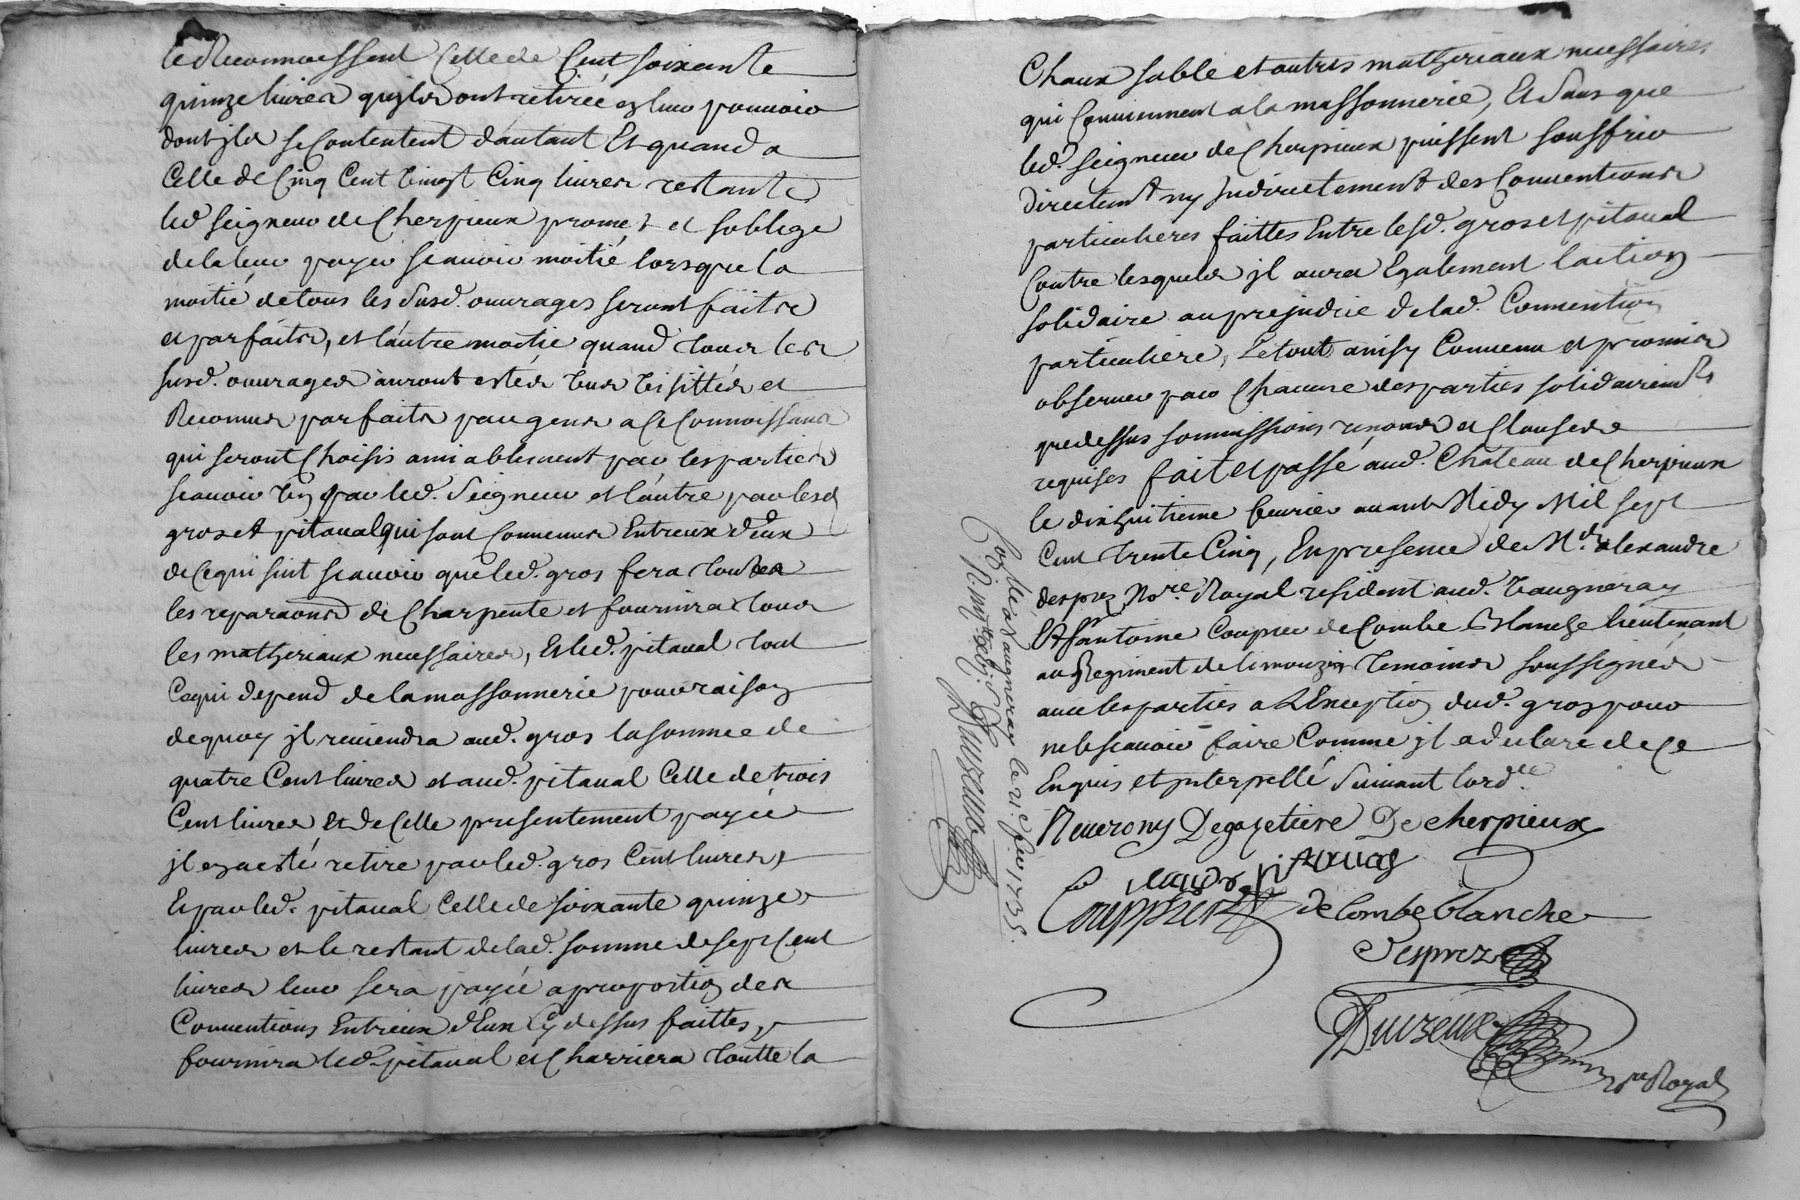 le Reconnoissent Celle de Cent soixante
quinze livres quils ont retirée en leur pouvoir
dont ils se Contentent d'autant Et quand a
Celle de Cinq Cent vingt Cinq livres restante
led. seigneur de Cherpieux promet et soblige
de la leur payer scauoir moitié lorsque la
moitié de tous les Susd. ouurages seront faits
et parfaits, et l'autre moitie quand tous les
susd. ouurages auront estés veus visittés et
Reconnus parfaits par gens a Ce Connoissans
qui seront Choisis amiablement par les parties
scauoir un par led. Seigneur et l'autre par lesd
gros et pitaual qui sont Conuenus Entreux d'Eux
de Ce qui suit scauoir que led. gros fera toutes
les reparaons de Charpente et fournira tous
les matheriaux necessaires, Et led. pitaual tout
Ce qui depend de la massonnerie pour raison
de quoy jl reuiendra aud. gros la somme de
quatre Cent livres et aud. pitaual Celle de trois
Cent livres Et de Celle presentement payée
jl en a esté retire par led. gros Cent livres,
Et par led. pitaual Celle de soixante quinze
livres et le restant de lad. somme de sept Cent
livres leur sera payée a proportion des
Conuentions Entreux d'Eux Cy dessus faittes,
fournira led. pitaual et Charriera toutte la
Chaux sable et autres matheriaux necessaires
qui Conuiennent a la massonnerie, Et sans que
led. seigneur de Cherpieux puissent souffrir
directemt ny Indirectement des Conuentions
particulieres faittes Entre lesd. gros et pitaual
Contre lesquels jl aura Egalement laction
solidaire au prejudice de lad. Conuention
particuliere, Le tout ainsy Conuenu et promis
obseruer par Chacune des parties solidairemt
que dessus soumissions renons et Clauses
requises fait et passé aud. Chateau de Cherpieux
le dixhuitieme feurier auant Midy Mil sept
Cent trente Cinq, En presence de Me. alexandre
desprez Nore Royal resident aud. Vaugneray
& Sr antoine Couprier de Combe Blanche lieutenant
au Regiment de limouzin temoins soussignés
auec les parties a LException dud. gros pour
ne le scauoir faire Comme jl a declaré de Ce
Enquis et interpellé suiuant lord.ce
Neuerony Degazetiere De cherpieux
pitaual
Couppier de Combe blanche
Desprez
Duizeux
nre Royal
Coll. a Vaugneray le 21e feur 1735.